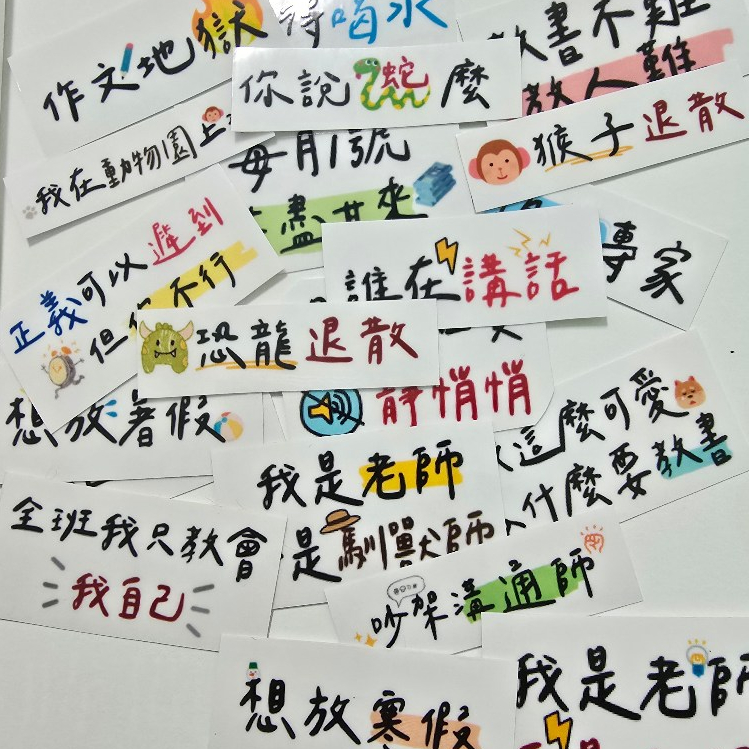 作文地獄
得喝水
教書不難
教人難
你說蛇麼
猴子退散
我在動物園上
每月1號
盡其來
專家
正義可以遲到
但你不行
誰在講話
恐龍退散
靜悄悄
想放暑假
這麼可愛
什麼要教書
我是老師
是馴獸師
全班我只教會
我自己
吵架溝通師
想放寒假
我是老師